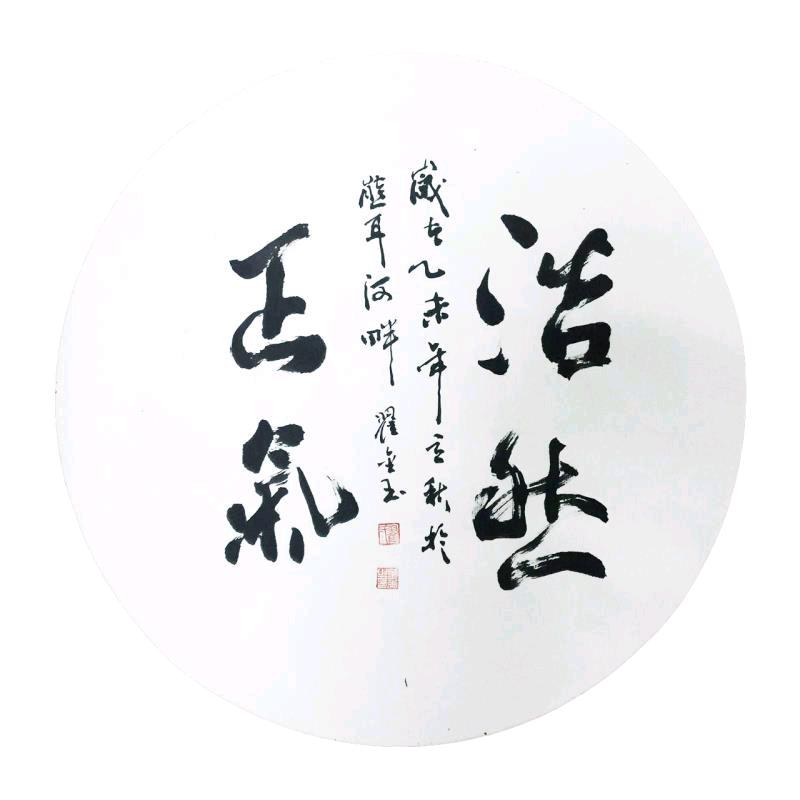 浩然
歲在乙未年立秋於
熊耳河畔 翟金玉
正氣